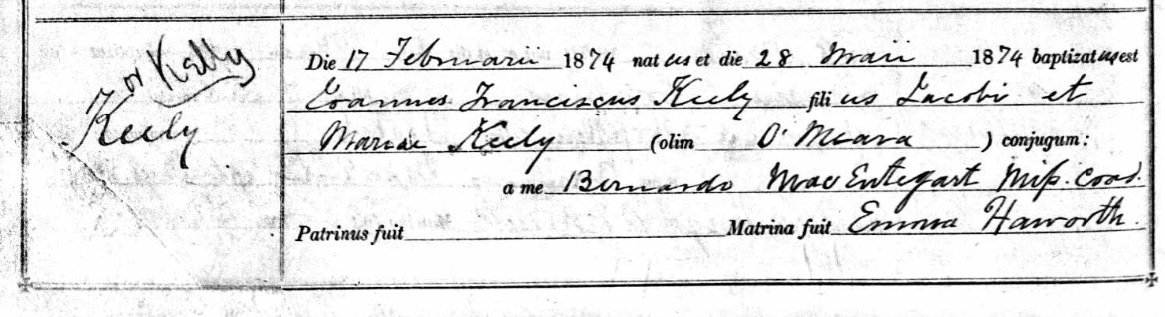 or Kelly
Keely
Die 17 Februarii 1874 natus et die 28 Maii 1874 baptizatus est
Joannes Franciscus Keely filius Jacobi et
Mariae Keely (olim O'Meara) conjugum:
a me Bernardo MacEntegart Miss. Coad.
Patrinus fuit Matrina fuit Emma Haworth